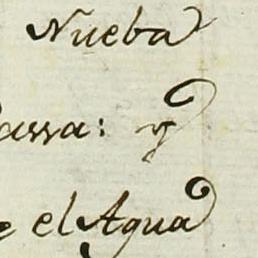 Nueba
assa: y
el Agua